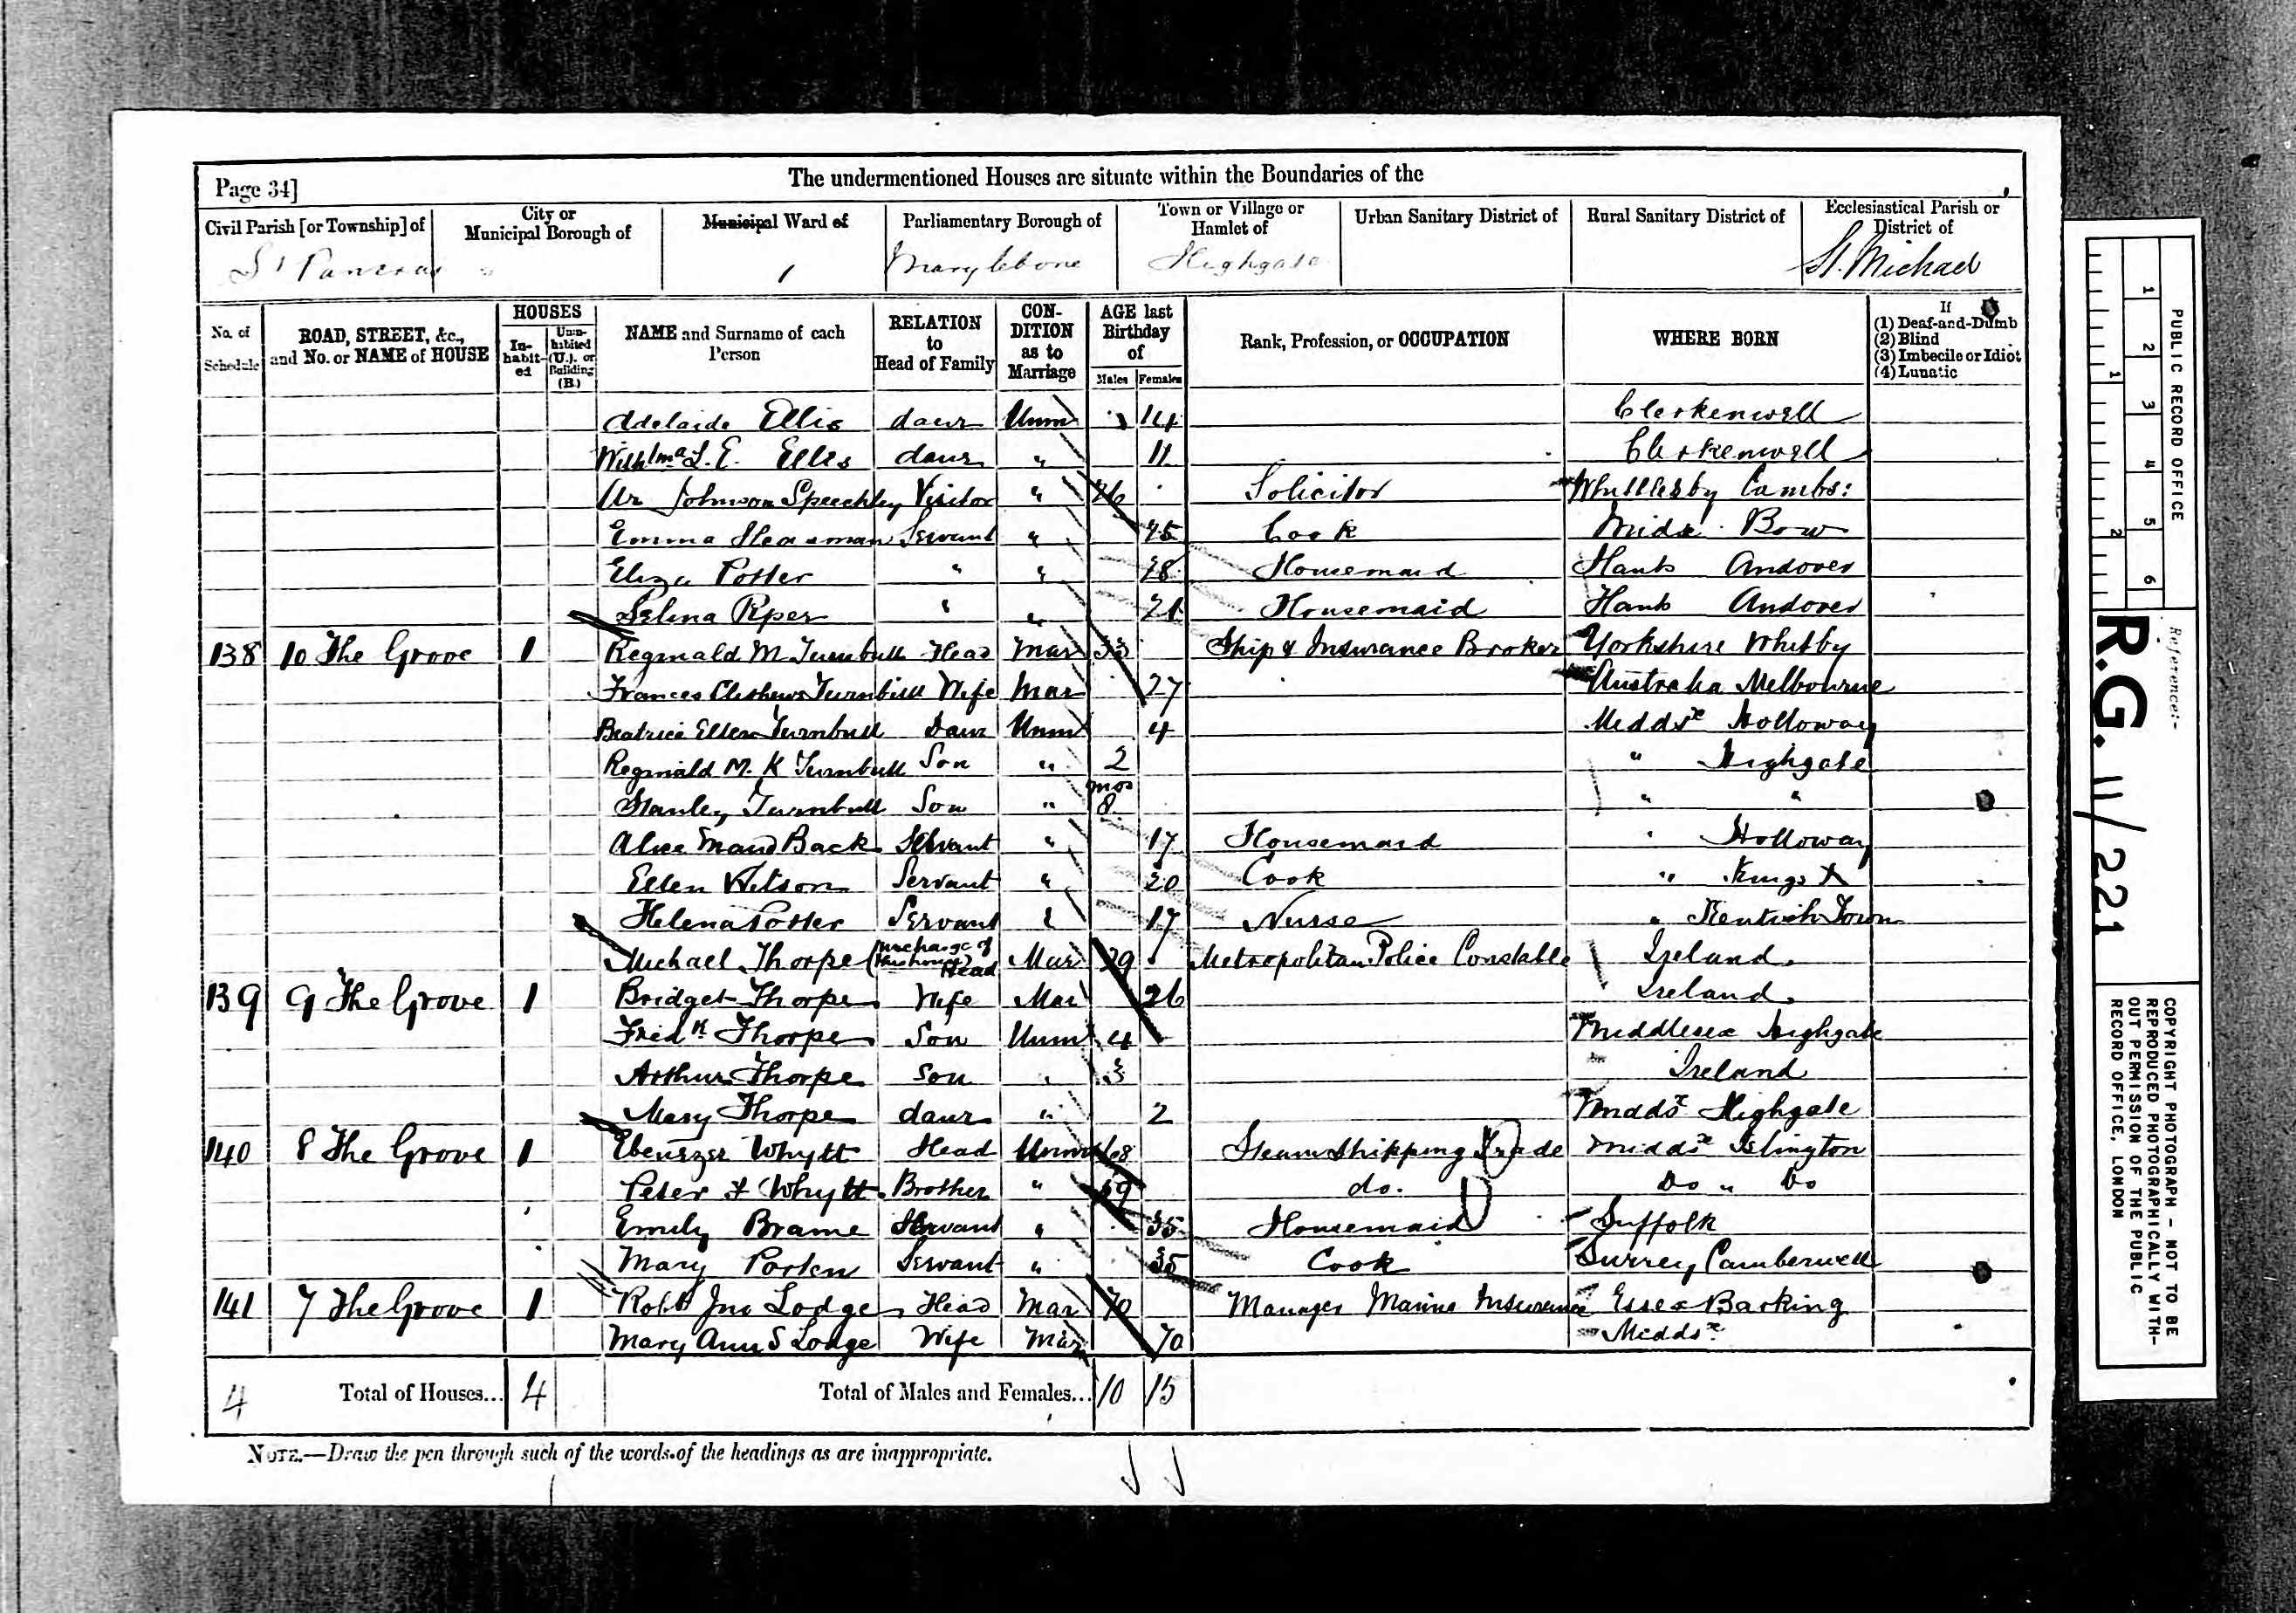 Page 34]
The undermentioned Houses are situate within the Boundaries of the
Civil Parish [or Township] of
City or Municipal Borough of
Municipal Ward of
Parliamentary Borough of
Town or Village or Hamlet of
Urban Sanitary District of
Rural Sanitary District of
Ecclesiastical Parish or District of
St Pancras 1 Marylebone Highgate St. Michael
No. of Schedule
ROAD, STREET, &c., and No. or NAME of HOUSE
HOUSES
In-habit-ed
Unin-habited (U.), or Building (B.)
NAME and Surname of each Person
RELATION to Head of Family
CON-DITION as to Marriage
AGE last Birthday of
Males Females
Rank, Profession, or OCCUPATION
WHERE BORN
If
(1) Deaf-and-Dumb
(2) Blind
(3) Imbecile or Idiot
(4) Lunatic
Adelaide Ellis daur Unm 14 Clerkenwell
Wilhlma L. E. Ellis daur " 11 Clerkenwell
Johnson Speechley Visitor " 26 Solicitor Whittlesby Cambs:
Emma Servant " 25 Cook Midx. Bow
Eliza Potter " " 28 Housemaid Hants Andover
Selina Piper " " 21 Housemaid Hants Andover
138 10 The Grove 1 Reginald M. Turnbull Head Mar 33 Ship & Insurance Broker Yorkshire Whitby
Frances Turnbull Wife Mar 27 Australia Melbourne
Beatrice Ellen Turnbull Daur Unm 4 Middsx Holloway
Reginald M. K Turnbull Son " 2 " Highgate
Stanley Turnbull Son " mos 8 " "
Alice Maud Back Servant " 17 Housemaid " Holloway
Ellen Servant " 20 Cook " Kings X
Helena Potter Servant " 17 Nurse " Kentish Town
Michael Thorpe (in charge of this house) Head Mar 29 Metropolitan Police Constable Ireland.
139 9 The Grove 1 Bridget Thorpe Wife Mar 26 Ireland.
Fredk Thorpe Son Unm 4 Middlesex Highgate
Arthur Thorpe Son " 3 Ireland
Mary Thorpe daur " 2 Middsx Highgate
140 8 The Grove 1 Ebenezer Whytt Head Unm 68 Steam Shipping Trade Middsx Islington
Peter Whytt Brother " 59 do. Do " Do
Emily Brame Servant " 35 Housemaid Suffolk
Mary Servant " 35 Cook Surrey Camberwell
141 7 The Grove 1 Robt Jno Lodge Head Mar 70 Manager Marine Insurance Essex Barking
Mary Ann S Lodge Wife Mar 70 Middsx
4 Total of Houses... 4 Total of Males and Females... 10 15
NOTE.—Draw the pen through such of the words of the headings as are inappropriate.
PUBLIC RECORD OFFICE
1 2 3 4 5 6
1 2
Reference:-
R.G. 11/221
COPYRIGHT PHOTOGRAPH - NOT TO BE
REPRODUCED PHOTOGRAPHICALLY WITH-
OUT PERMISSION OF THE PUBLIC
RECORD OFFICE, LONDON